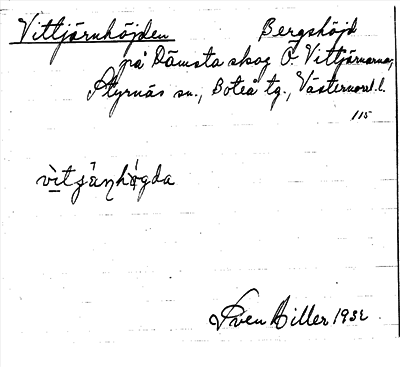 Vittjärnhöjden Bergshöjd
på Dämsta skog Ö. Vittjärnarna,
Styrnäs sn., Boteå tg., Västernorrl. l.
115
vìtjänhø̀gda
Sven Hiller 1932